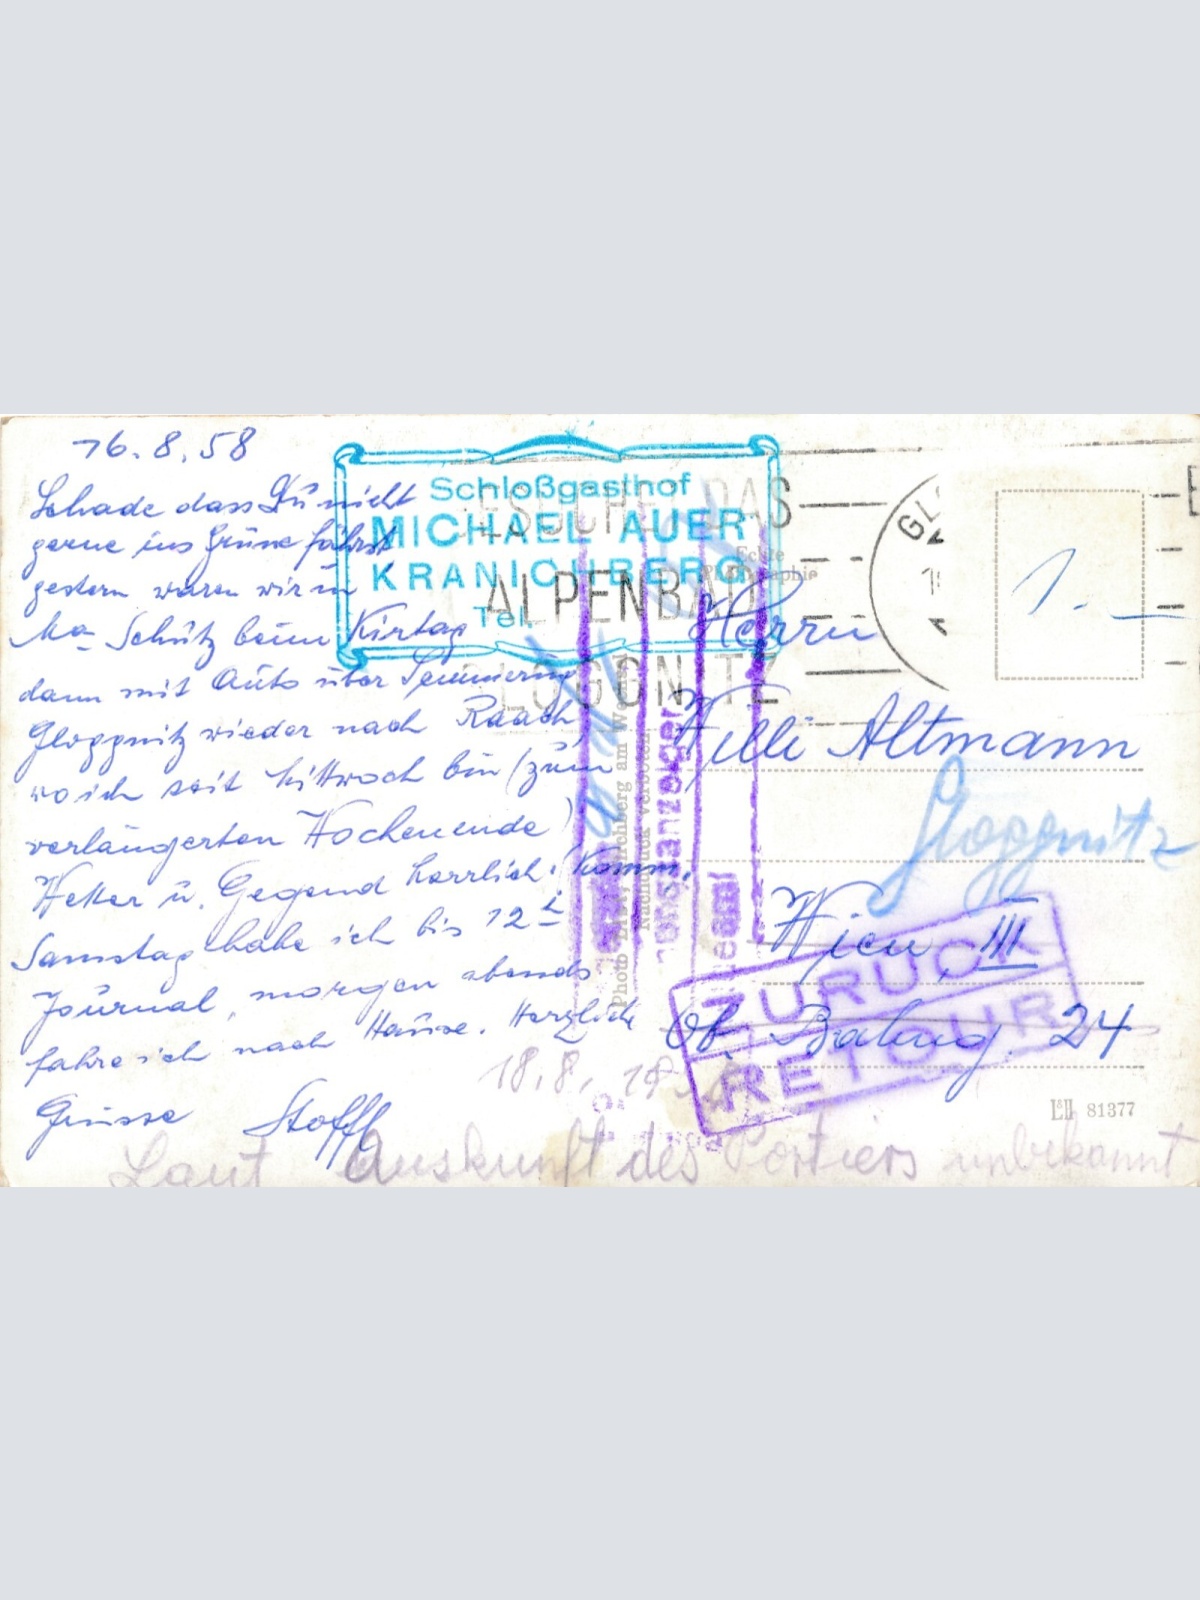 16.8.58
Schade dass Du nicht
gerne ins Grüne fährst
gestern waren wir in
Ma Schutz beim Kirtag
dann mit Auto über Semmering
Gloggnitz wieder nach Raach
wo ich seit Mittwoch bin (zum
verlängerten Wochenende)
Wetter u. Gegend herrlich! Komm.
Samstag habe ich bis 12
Journal, morgen abends
fahre ich nach Hause. Herzliche
Grüsse Stoffl
Schloßgasthof
MICHAEL AUER
KRANICHBERG
Tel.
DAS
ALPENBAD
GLOGGNITZ
GL
Echte
Photographie
1.-
Herrn
Willi Altmann
Gloggnitz
Wien, III
Ob. Bahng. 24
ZURÜCK
RETOUR
Nachdruck verboten
L&H 81377
18.8.
Laut Auskunft des Portiers unbekannt